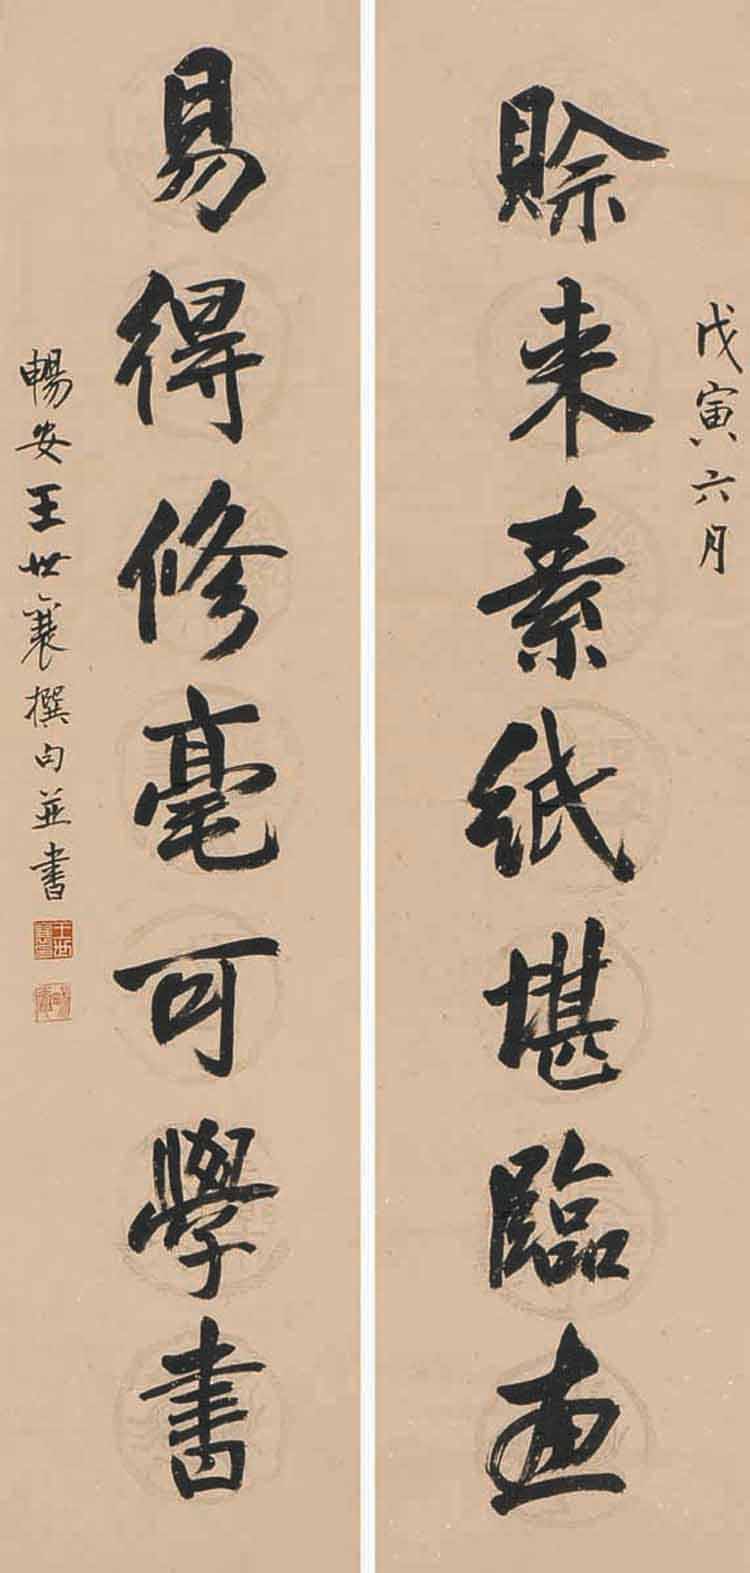 戊寅六月
賒来素紙堪臨畫
易得修毫可學書
暢安王世襄撰句並書
王世襄
暢安